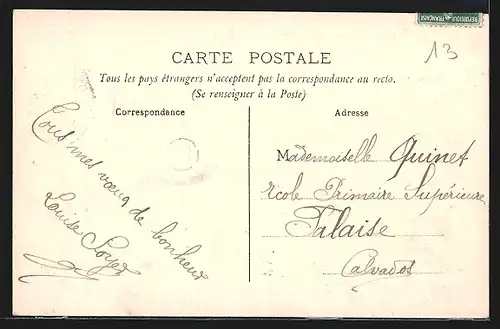 REPUBLIQUE FRANÇAISE
13
CARTE POSTALE
Tous les pays étrangers n'acceptent pas la correspondance au recto.
(Se renseigner à la Poste)
Correspondance
Tous mes vœux de bonheur
Louise Soyer
Adresse
Mademoiselle Quinet
Ecole Primaire Supérieure
Falaise
Calvados